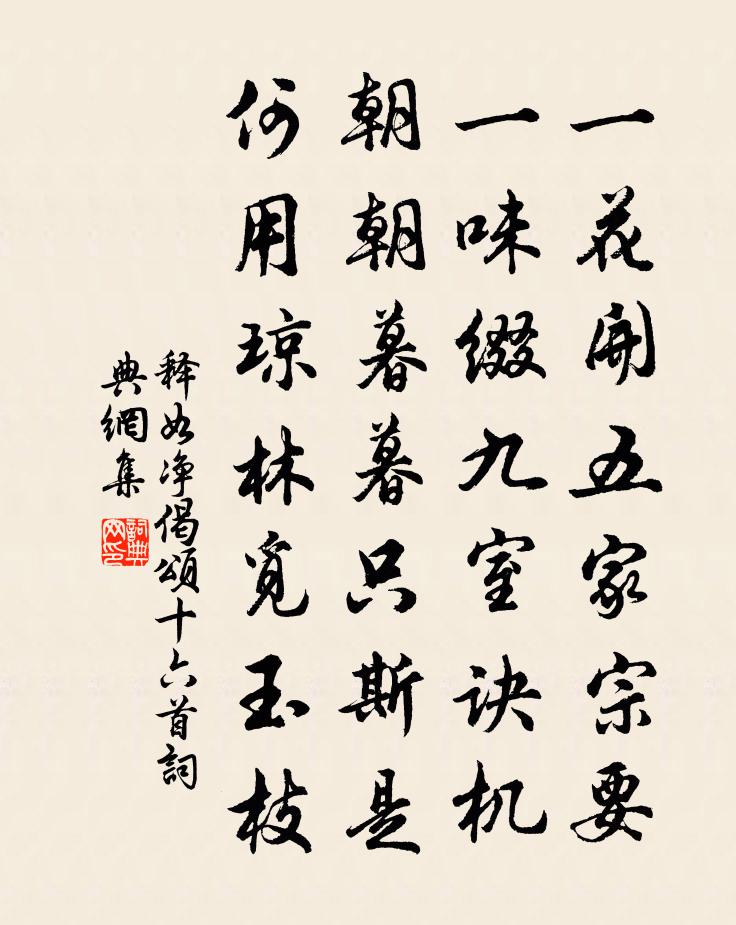 一花開五家宗要
一味缀九室诀机
朝朝暮暮只斯是
何用琼林觅玉枝
释如净偈颂十六首詞
典網集
詞典
网印